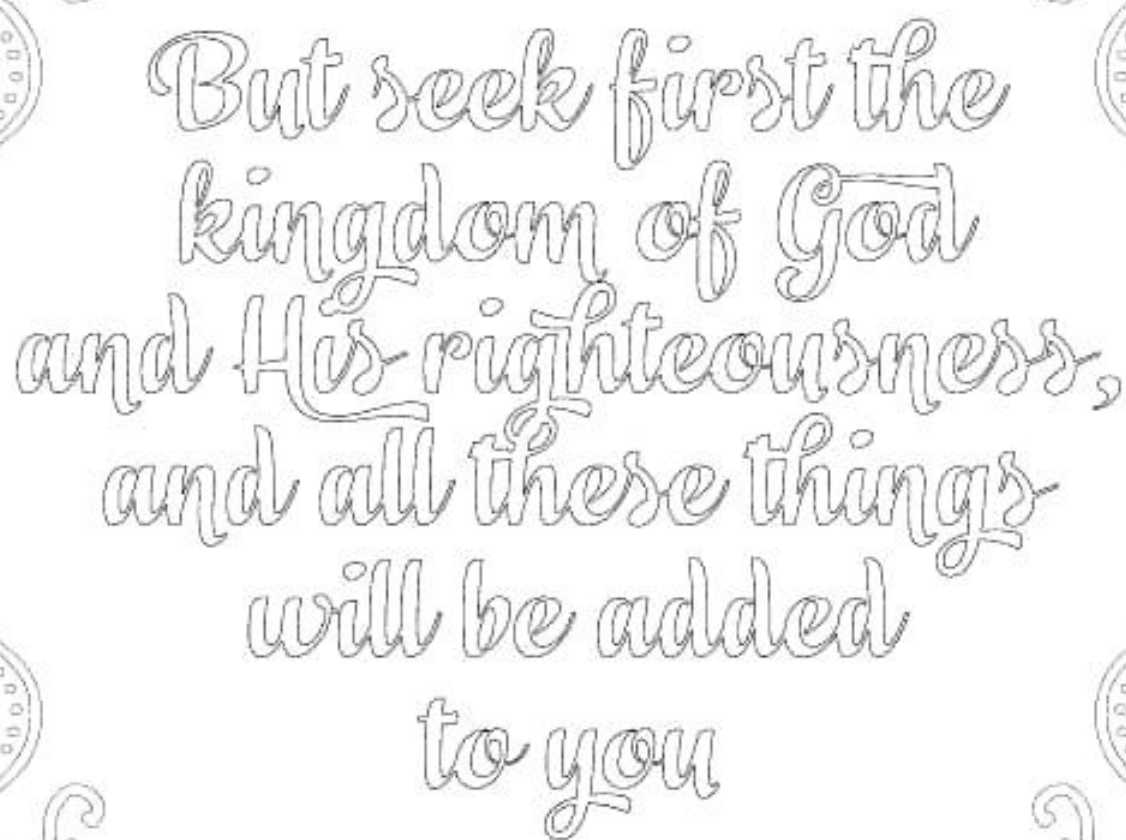 But seek first the
kingdom of God
and His righteousness,
and all these things
will be added
to you